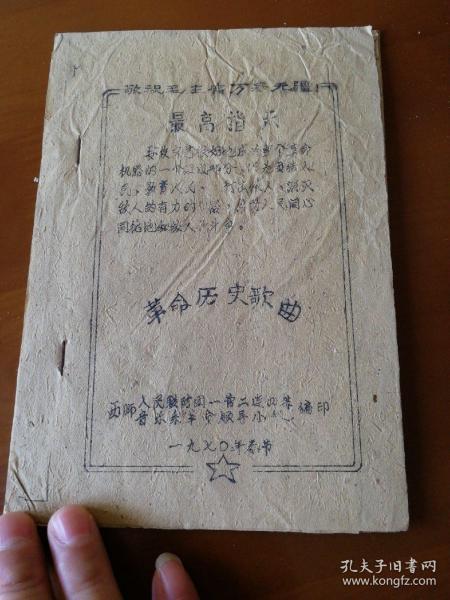 敬祝毛主席万寿无疆!
最高指示
要使文艺很好地成为整个革命
机器的一个组成部分,作为团结人
民、教育人民、打击敌人、消灭
敌人的有力的武器,帮助人民同心
同德地和敌人作斗争。
革命历史歌曲
西师 人民战时团一营二连四排 编印
音乐系革命领导小组
一九七〇年春节
孔夫子旧书网
www.kongfz.com